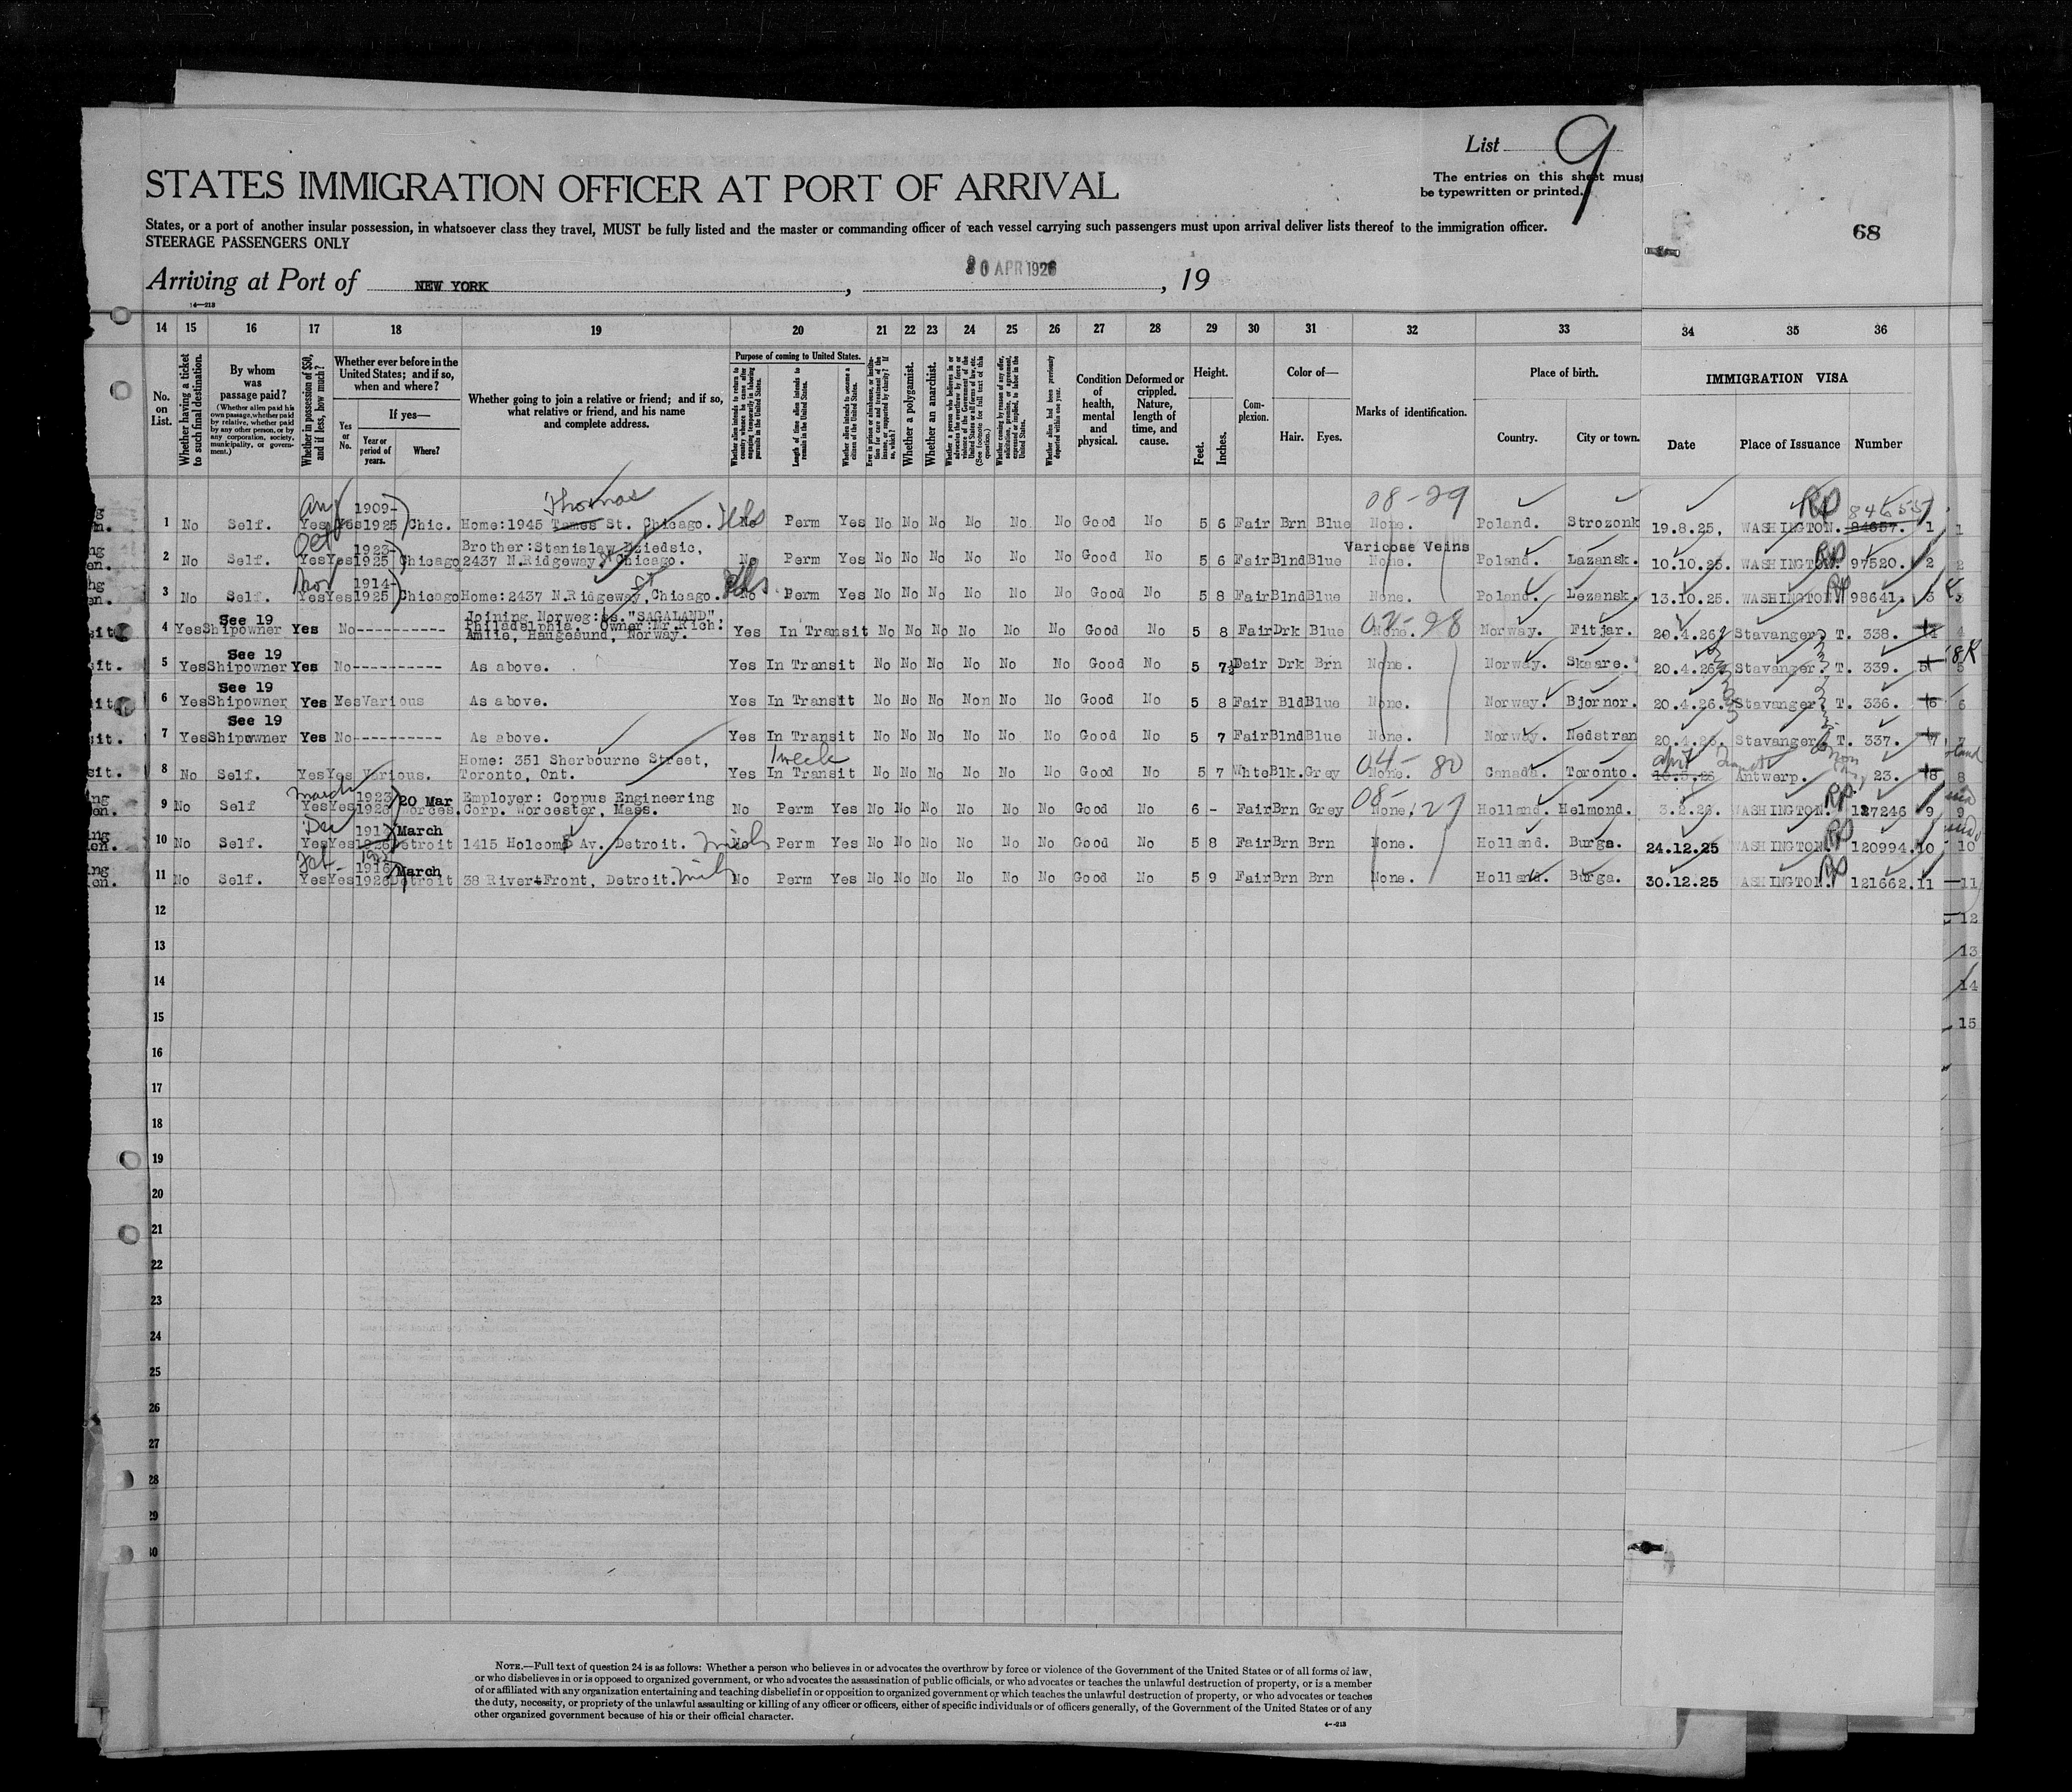 List 9
The entries on this sheet must
be typewritten or printed.
68
STATES IMMIGRATION OFFICER AT PORT OF ARRIVAL
States, or a port of another insular possession, in whatsoever class they travel, MUST be fully listed and the master or commanding officer of each vessel carrying such passengers must upon arrival deliver lists thereof to the immigration officer.
STEERAGE PASSENGERS ONLY
Arriving at Port of NEW YORK, 30 APR 1926, 19
14 15 16 17 18 19 20 21 22 23 24 25 26 27 28 29 30 31 32 33 34 35 36
No. on List.
Whether having a ticket to such final destination.
By whom was passage paid?
(Whether alien paid his own passage, whether paid by relative, whether paid by any other person, or by any corporation, society, municipality, or government.)
Whether in possession of $50, and if less, how much?
Whether ever before in the United States; and if so, when and where?
Yes or No.
If yes—
Year or period of years.
Where?
Whether going to join a relative or friend; and if so, what relative or friend, and his name and complete address.
Purpose of coming to United States.
Length of time alien intends to remain in the United States.
Whether alien intends to become a citizen of the United States.
Whether a polygamist.
Whether an anarchist.
Condition of health, mental and physical.
Deformed or crippled. Nature, length of time, and cause.
Height.
Feet. Inches.
Complexion.
Color of—
Hair. Eyes.
Marks of identification.
Place of birth.
Country. City or town.
IMMIGRATION VISA
Date Place of Issuance Number
Thomas 08-29 84655
1 No Self. Yes Yes 1909-1925 Chic. Home:1945 Tames St. Chicago. No Perm Yes No No No No No No Good No 5 6 Fair Brn Blue None. Poland. Strozonk 19.8.25, WASHINGTON. 84657. 1
2 No Self. Yes Yes 1923-1925 Chicago Brother:Stanislaw Dziedsic, 2437 N.Ridgeway, Chicago. No Perm Yes No No No No No No Good No 5 6 Fair Blnd Blue Varicose Veins None. Poland. Lazansk. 10.10.25. WASHINGTON. 97520. 2
3 No Self. Yes Yes 1914-1925 Chicago Home:2437 N.Ridgeway, Chicago. No Perm Yes No No No No No No Good No 5 8 Fair Blnd Blue None. Poland. Lezansk. 13.10.25. WASHINGTON 98641. 3
4 Yes See 19 Shipowner Yes No---------- Joining Norweg: ss."SAGALAND", Philadelphia. Owner:Mr.Rich: Amlie, Haugesund, Norway. Yes In Transit No No No No No No Good No 5 8 Fair Drk Blue None. Norway. Fitjar. 20.4.26 Stavanger. T. 338. 4
5 Yes See 19 Shipowner Yes No---------- As above. Yes In Transit No No No No No No Good No 5 7½ Dair Drk Brn None. Norway. Skaare. 20.4.26 Stavanger. T. 339. 5
6 Yes See 19 Shipowner Yes Yes Various As above. Yes In Transit No No No Non No No Good No 5 8 Fair Bld Blue None. Norway. Bjornor. 20.4.26. Stavanger. T. 336. 6
7 Yes See 19 Shipowner Yes No---------- As above. Yes In Transit No No No No No No Good No 5 7 Fair Blnd Blue None. Norway. Nedstran 20.4.26. Stavanger. T. 337. 7
1 week 04- 80
8 No Self. Yes Yes Various. Home: 351 Sherbourne Street, Toronto, Ont. Yes In Transit No No No No No No Good No 5 7 Whte Blk. Grey None. Canada. Toronto. Antwerp. 23. 8
9 No Self Yes Yes 1923 20 Mar Worces. Employer: Coppus Engineering Corp. Worcester, Mass. No Perm Yes No No No No No No Good No 6 - Fair Brn Grey None. Holland. Helmond. 3.2.26. WASHINGTON. 127246 9
10 No Self. Yes Yes March Detroit 1415 Holcomb Av. Detroit. Mich No Perm Yes No No No No No No Good No 5 8 Fair Brn Brn None. Holland. Burgs. 24.12.25 WASHINGTON. 120994. 10
11 No Self. Yes Yes 1916 March Detroit 38 River Front, Detroit. Mich No Perm Yes No No No No No No Good No 5 9 Fair Brn Brn None. Holland. Burga. 30.12.25 WASHINGTON. 121662. 11
12
13
14
15
16
17
18
19
20
21
22
23
24
25
26
27
28
29
30
NOTE.—Full text of question 24 is as follows: Whether a person who believes in or advocates the overthrow by force or violence of the Government of the United States or of all forms of law,
or who disbelieves in or is opposed to organized government, or who advocates the assassination of public officials, or who advocates or teaches the unlawful destruction of property, or is a member
of or affiliated with any organization entertaining and teaching disbelief in or opposition to organized government or which teaches the unlawful destruction of property, or who advocates or teaches
the duty, necessity, or propriety of the unlawful assaulting or killing of any officer or officers, either of specific individuals or of officers generally, of the Government of the United States or of any
other organized government because of his or their official character.
4—213